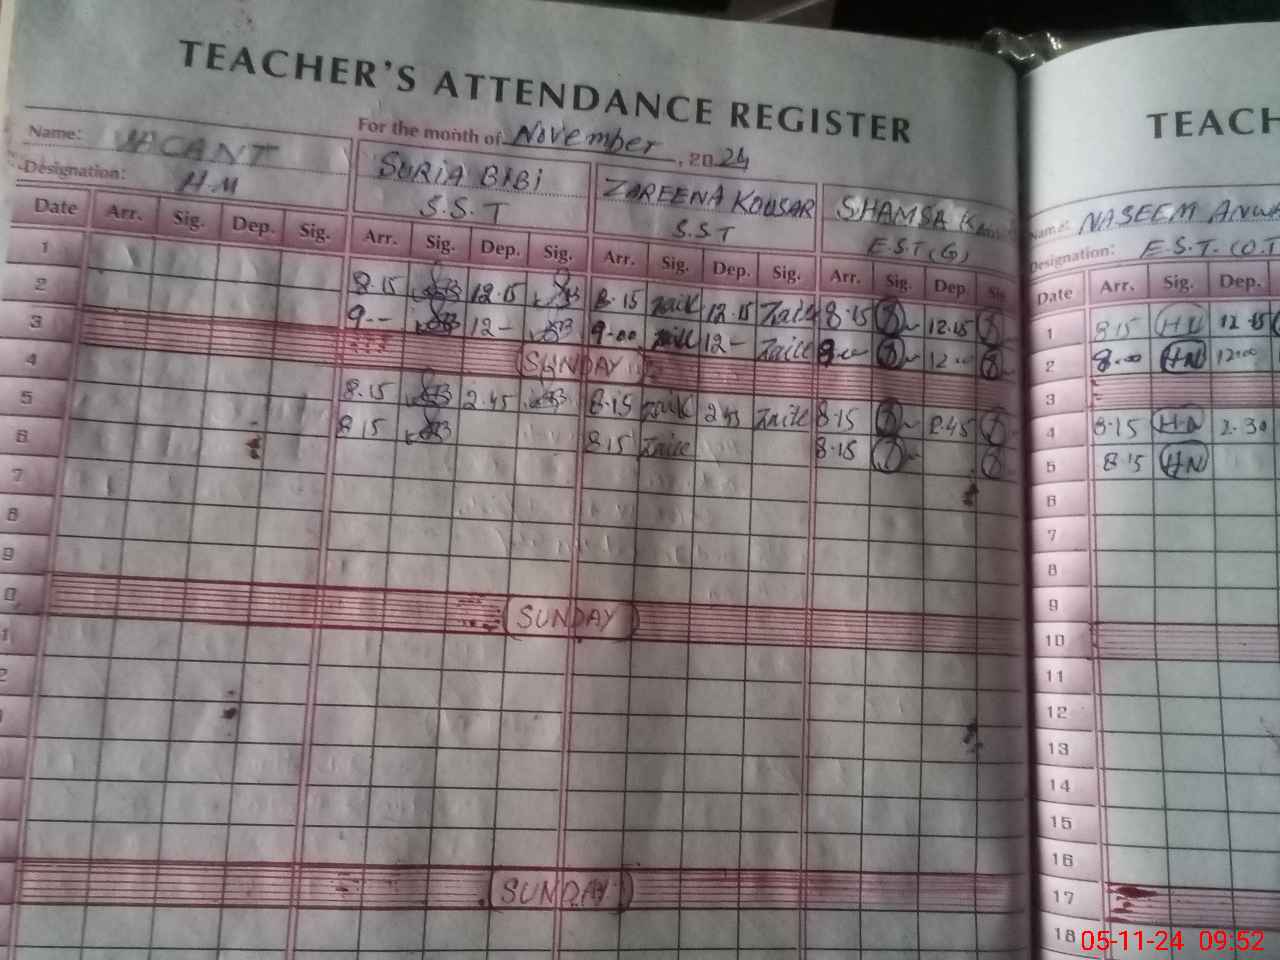 TEACHER'S ATTENDANCE REGISTER
For the month of November, 2024
Name: VACANT
SURIA BIBI
ZAREENA KOUSAR
SHAMSA
Designation: H.M
S.S.T
S.S.T
E.S.T(G)
Date Arr. Sig. Dep. Sig. Arr. Sig. Dep. Sig. Arr. Sig. Dep. Sig. Arr. Sig. Dep. Sig
1 8.15 12.15 8.15 12.15 8.15 12.15
2 9-- 12- 9.00 12- 9.00 12.00
3 SUNDAY
4 8.15 2.45 8.15 2.45 8.15 2.45
5 8.15 8.15 8.15
6
7
8
9
SUNDAY
SUNDAY
TEACH
Name: NASEEM ANWA
Designation: E.S.T.(O.T
Date Arr. Sig. Dep.
1 8.15 HN 12.15
2 8.00 HN 12.00
3
4 8.15 HN 2.30
5 8.15 HN
6
7
8
9
10
11
12
13
14
15
16
17
18
05-11-24 09:52